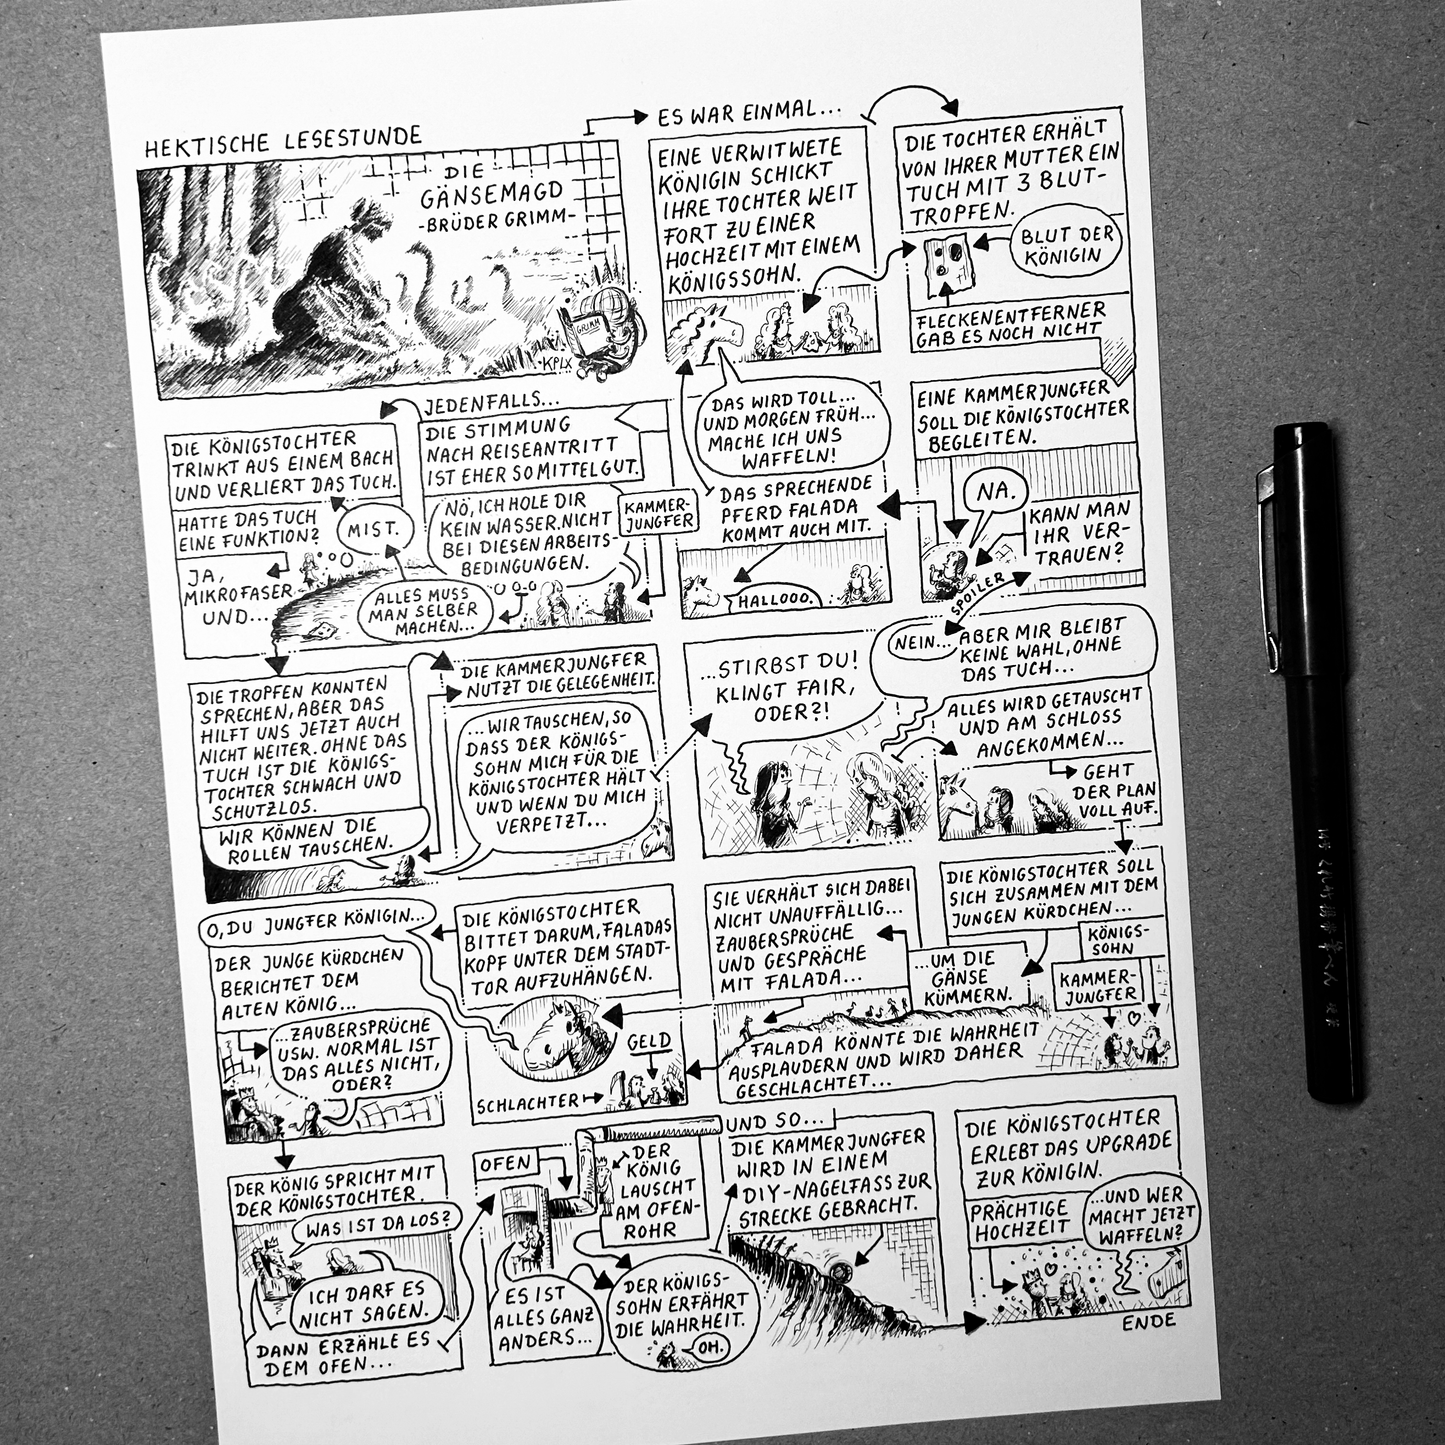 HEKTISCHE LESESTUNDE
DIE
GÄNSEMAGD
-BRÜDER GRIMM-
GRIMM
·KPLX
ES WAR EINMAL...
EINE VERWITWETE
KÖNIGIN SCHICKT
IHRE TOCHTER WEIT
FORT ZU EINER
HOCHZEIT MIT EINEM
KÖNIGSSOHN.
DIE TOCHTER ERHÄLT
VON IHRER MUTTER EIN
TUCH MIT 3 BLUT-
TROPFEN.
BLUT DER
KÖNIGIN
FLECKENENTFERNER
GAB ES NOCH NICHT
DAS WIRD TOLL...
UND MORGEN FRÜH...
MACHE ICH UNS
WAFFELN!
EINE KAMMERJUNGFER
SOLL DIE KÖNIGSTOCHTER
BEGLEITEN.
NA.
KANN MAN
IHR VER-
TRAUEN?
SPOILER
NEIN...
DAS SPRECHENDE
PFERD FALADA
KOMMT AUCH MIT.
HALLOOO.
JEDENFALLS...
DIE STIMMUNG
NACH REISEANTRITT
IST EHER SO MITTELGUT.
NÖ, ICH HOLE DIR
KEIN WASSER. NICHT
BEI DIESEN ARBEITS-
BEDINGUNGEN.
KAMMER-
JUNGFER
ALLES MUSS
MAN SELBER
MACHEN...
DIE KÖNIGSTOCHTER
TRINKT AUS EINEM BACH
UND VERLIERT DAS TUCH.
MIST.
HATTE DAS TUCH
EINE FUNKTION?
JA,
MIKROFASER
UND...
DIE TROPFEN KONNTEN
SPRECHEN, ABER DAS
HILFT UNS JETZT AUCH
NICHT WEITER. OHNE DAS
TUCH IST DIE KÖNIGS-
TOCHTER SCHWACH UND
SCHUTZLOS.
WIR KÖNNEN DIE
ROLLEN TAUSCHEN.
DIE KAMMERJUNGFER
NUTZT DIE GELEGENHEIT.
...WIR TAUSCHEN, SO
DASS DER KÖNIGS-
SOHN MICH FÜR DIE
KÖNIGSTOCHTER HÄLT
UND WENN DU MICH
VERPETZT...
...STIRBST DU!
KLINGT FAIR,
ODER?!
ABER MIR BLEIBT
KEINE WAHL, OHNE
DAS TUCH...
ALLES WIRD GETAUSCHT
UND AM SCHLOSS
ANGEKOMMEN...
GEHT
DER PLAN
VOLL AUF.
DIE KÖNIGSTOCHTER SOLL
SICH ZUSAMMEN MIT DEM
JUNGEN KÜRDCHEN...
...UM DIE
GÄNSE
KÜMMERN.
KÖNIGS-
SOHN
KAMMER-
JUNGFER
SIE VERHÄLT SICH DABEI
NICHT UNAUFFÄLLIG...
ZAUBERSPRÜCHE
UND GESPRÄCHE
MIT FALADA...
FALADA KÖNNTE DIE WAHRHEIT
AUSPLAUDERN UND WIRD DAHER
GESCHLACHTET...
GELD
SCHLACHTER
DIE KÖNIGSTOCHTER
BITTET DARUM, FALADAS
KOPF UNTER DEM STADT-
TOR AUFZUHÄNGEN.
O, DU JUNGFER KÖNIGIN...
DER JUNGE KÜRDCHEN
BERICHTET DEM
ALTEN KÖNIG...
...ZAUBERSPRÜCHE
USW. NORMAL IST
DAS ALLES NICHT,
ODER?
DER KÖNIG SPRICHT MIT
DER KÖNIGSTOCHTER.
WAS IST DA LOS?
ICH DARF ES
NICHT SAGEN.
DANN ERZÄHLE ES
DEM OFEN...
OFEN
ES IST
ALLES GANZ
ANDERS...
DER
KÖNIG
LAUSCHT
AM OFEN-
ROHR
DER KÖNIGS-
SOHN ERFÄHRT
DIE WAHRHEIT.
OH.
UND SO...
DIE KAMMERJUNGFER
WIRD IN EINEM
DIY-NAGELFASS ZUR
STRECKE GEBRACHT.
DIE KÖNIGSTOCHTER
ERLEBT DAS UPGRADE
ZUR KÖNIGIN.
PRÄCHTIGE
HOCHZEIT
...UND WER
MACHT JETZT
WAFFELN?
ENDE